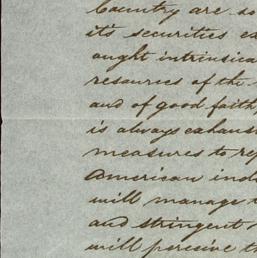 Country are so
it's securities ex
ought intrinsica
resources of the
and of good faith,
is always exhaus
measures to rep
American indu
will manage t
and stringent
will percieve th